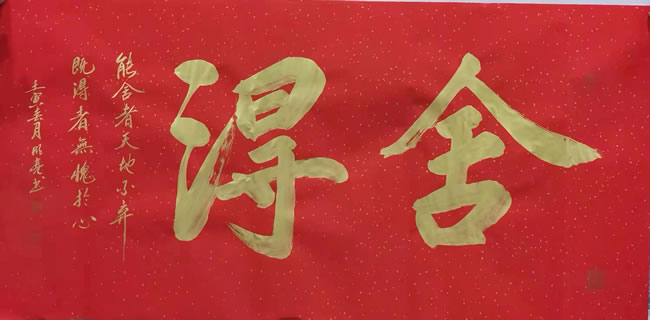 舍得
能舍者天地不弃
既得者無愧於心
壬寅春月明亮书